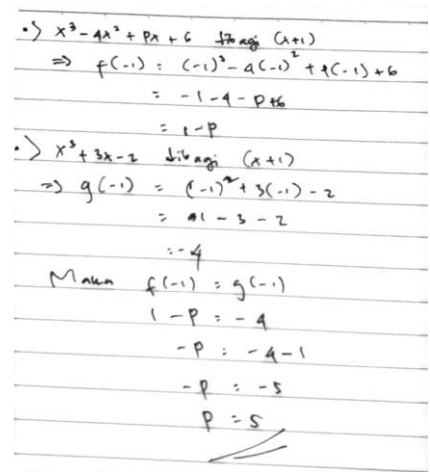 •> x³ - 4x² + px + 6 dibagi (x+1)
=> f(-1) = (-1)³ - 4(-1)² + p(-1) + 6
= -1 - 4 - p + 6
= 1 - p
•> x³ + 3x - 2 dibagi (x+1)
=> g(-1) = (-1)² + 3(-1) - 2
= 1 - 3 - 2
= -4
Maka f(-1) = g(-1)
1 - p = -4
-p = -4 - 1
-p = -5
p = 5